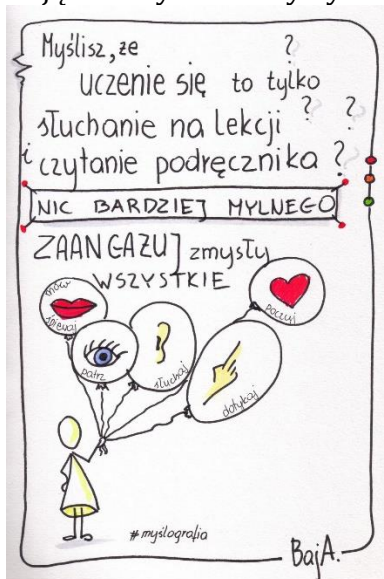 Myślisz, że ?
uczenie się to tylko
słuchanie na lekcji ? ?
i czytanie podręcznika ?
NIC BARDZIEJ MYLNEGO
ZAANGAZUJ zmysły
WSZYSTKIE
mów
śpiewaj
patrz
słuchaj
dotykaj
poczuj
#myślografia
BajA.